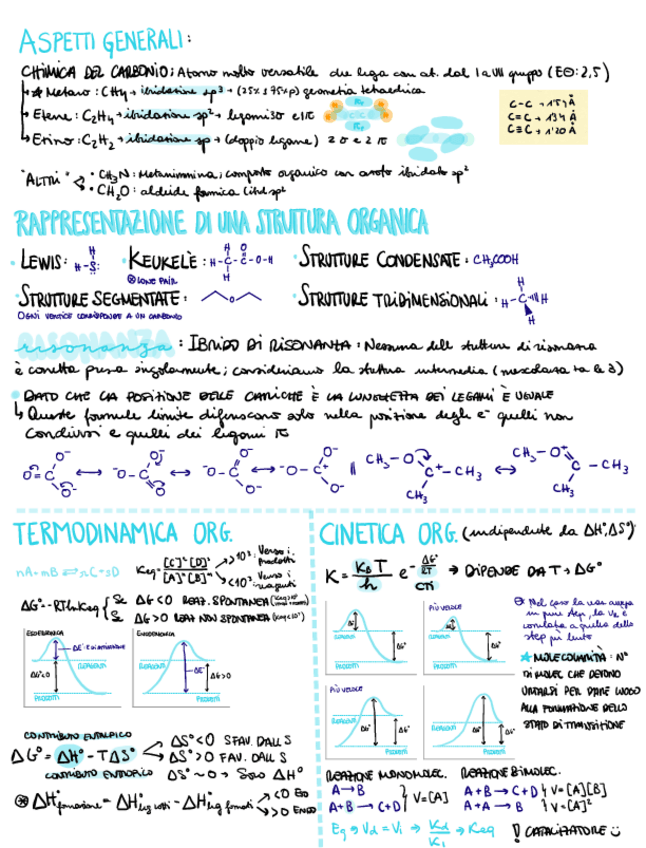 ASPETTI GENERALI:
CHIMICA DEL CARBONIO: Atomo molto versatile che lega con at. dal I a VII gruppo (EΘ: 2,5)
★ Metano: CH4 → ibridazione sp3 → (25%s 75%p) geometria tetraedrica
Etene: C2H4 → ibridazione sp2 → legami 5σ e 1π
Etino: C2H2 → ibridazione sp → (doppio legame) 2σ e 2π
C-C → 1'54 Å
C=C → 1'34 Å
C≡C → 1'20 Å
"ALTRI"
• CH3N: Metanimmina; composto organico con azoto ibridato sp2
• CH2O: aldeide formica (ibrid sp2
RAPPRESENTAZIONE DI UNA STRUTTURA ORGANICA
• LEWIS: H-S: H
• KEUKELÈ: H-C-C-O-H H H O
⊗ LONE PAIR
• STRUTTURE CONDENSATE: CH3COOH
• STRUTTURE SEGMENTATE: O
OGNI VERTICE CORRISPONDE A UN CARBONIO
• STRUTTURE TRIDIMENSIONALI: H-C H H H
risonanza: IBRIDO DI RISONANZA: Nessuna delle strutture di risonanza
è corretta presa singolarmente; consideriamo la struttura intermedia (mescolanza tra le 3)
• DATO CHE LA POSIZIONE DELLE CARICHE È LA LUNGHEZZA DEI LEGAMI È UGUALE
↳ Queste formule limite differiscono solo nella posizione degli e- quelli non
condivisi e quelli dei legami π
O=C O- O- ↔ -O-C O- O ↔ -O-C O O- ↔ -O-C+ O- O- || CH3-O C+ -CH3 CH3 ↔ CH3-O+ C -CH3 CH3
TERMODINAMICA ORG.
nA+mB ⇌ rC+sD
Keq= [C]r[D]s / [A]n[B]m
>>10³: Verso i prodotti
<10³: Verso i reagenti
ΔG°=-RTlnKeq
Se ΔG<0 REAZ. SPONTANEA
Se ΔG>0 REAZ NON SPONTANEA
ESOERGONICA
REAGENTI
ΔG°<0
PRODOTTI
ENDOERGONICA
REAGENTI
ΔE°
ΔG>0
PRODOTTI
CONTRIBUTO ENTALPICO
ΔG°= ΔH° - TΔS°
CONTRIBUTO ENTROPICO
ΔS°<0 SFAV. DALL S
ΔS°>0 FAV. DALL S
ΔS°~0 → Solo ΔH°
⊗ ΔH°formazione = ΔH°leg rotti - ΔH°leg formati
<0 ESO
>0 ENDO
CINETICA ORG. (indipendente da ΔH°,ΔS°)
K= KB T / h e- ΔG° / RT → DIPENDE DA T → ΔG°
CTI
REAGENTI
ΔG°
PRODOTTI
PIÙ VELOCE
REAGENTI
ΔG°
PRODOTTI
PIÙ VELOCE
REAGENTI
ΔG°
PRODOTTI
REAGENTI
ΔG°
PRODOTTI
Nel caso la reaz avvenga
in più step, la V è
correlata a quella dello
step più lento
★ MOLECOLARITÀ: N°
DI MOLEC CHE DEVONO
URTARSI PER DARE LUOGO
ALLA FORMAZIONE DELLO
STATO DI TRANSIZIONE
REAZIONE MONOMOLEC.
A→B
A+B → C+D
V=[A]
REAZIONE BIMOLEC.
A+B → C+D V=[A][B]
A+A → B V=[A]²
Eq → Vd = Vi → Kd / Ki → Keq
! CATALIZZATORE